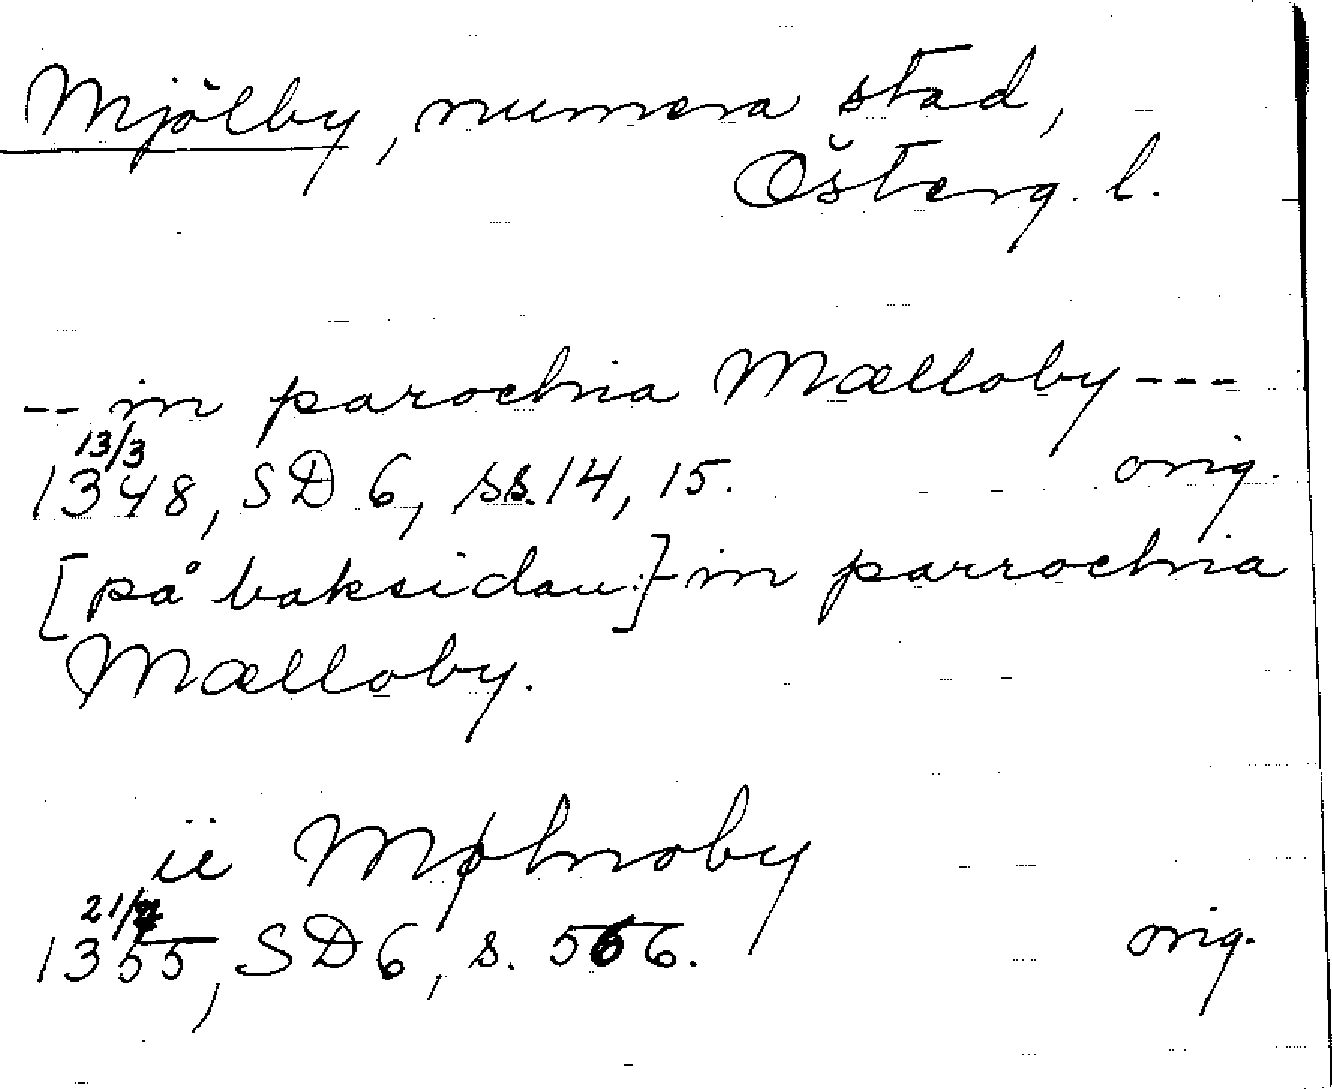 Mjölby, numera stad,
Österg. l.
-- in parochia Mælloby ---
13/3
1348, SD 6, ss. 14, 15. orig.
[på baksidan:] in parrochia
Mælloby.
Mølnoby
1355, SD 6, s. 566. orig.